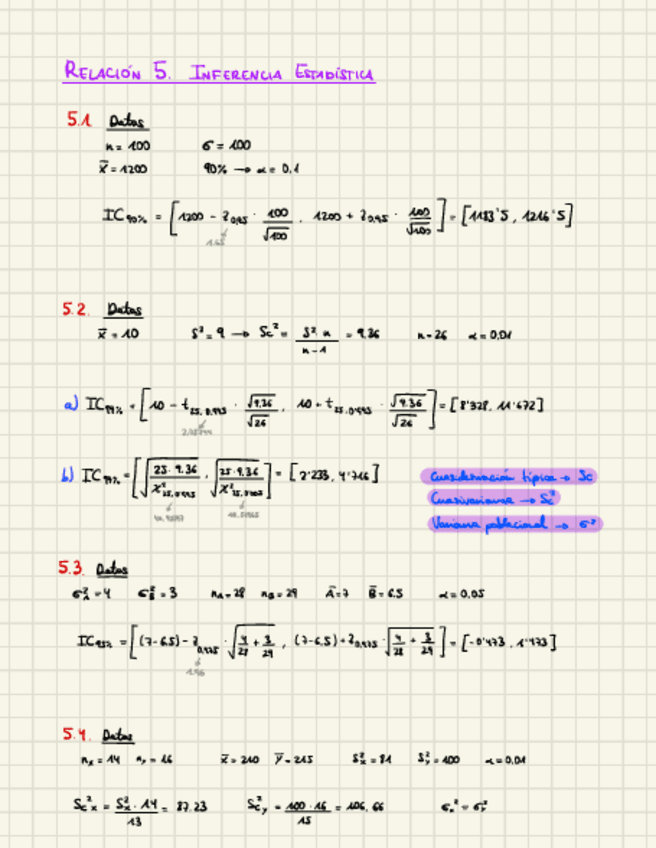 RELACIÓN 5. INFERENCIA ESTADÍSTICA
5.1 Datos
n = 100 σ = 100
x̄ = 1200 90% → α = 0,1
IC90% = [1200 - z0,95 · 100/√100 , 1200 + z0,95 · 100/√100] = [1183'5 , 1216'5]
1.65
5.2. Datos
x̄ = 10 S² = 9 → Sc² = S²·n/n-1 = 9.36 n=26 α=0,01
a) IC99% = [10 - t25,0.995 · √9.36/√26 , 10 + t25,0.995 · √9.36/√26] = [8'328, 11'672]
b) IC99% = [√25·9.36/χ²25,0.995 , √25·9.36/χ²25,0.005] = [2'233, 4'716]
Cuasidesviación típica → Sc
Cuasivarianza → Sc²
Varianza poblacional → σ²
5.3. Datos
σ²A=4 σ²B=3 nA=28 nB=29 Ā=7 B̄=6.5 α=0,05
IC95% = [(7-6.5) - z0,975 · √4/28 + 3/29 , (7-6.5) + z0,975 · √4/28 + 3/29] = [-0'473 , 1'473]
1.96
5.4. Datos
nx = 14 ny = 16 x̄ = 210 ȳ = 215 S²x = 81 S²y = 100 α=0,01
Sc²x = S²x·14/13 = 87.23 Sc²y = 100·16/15 = 106,66 σx² = σy²